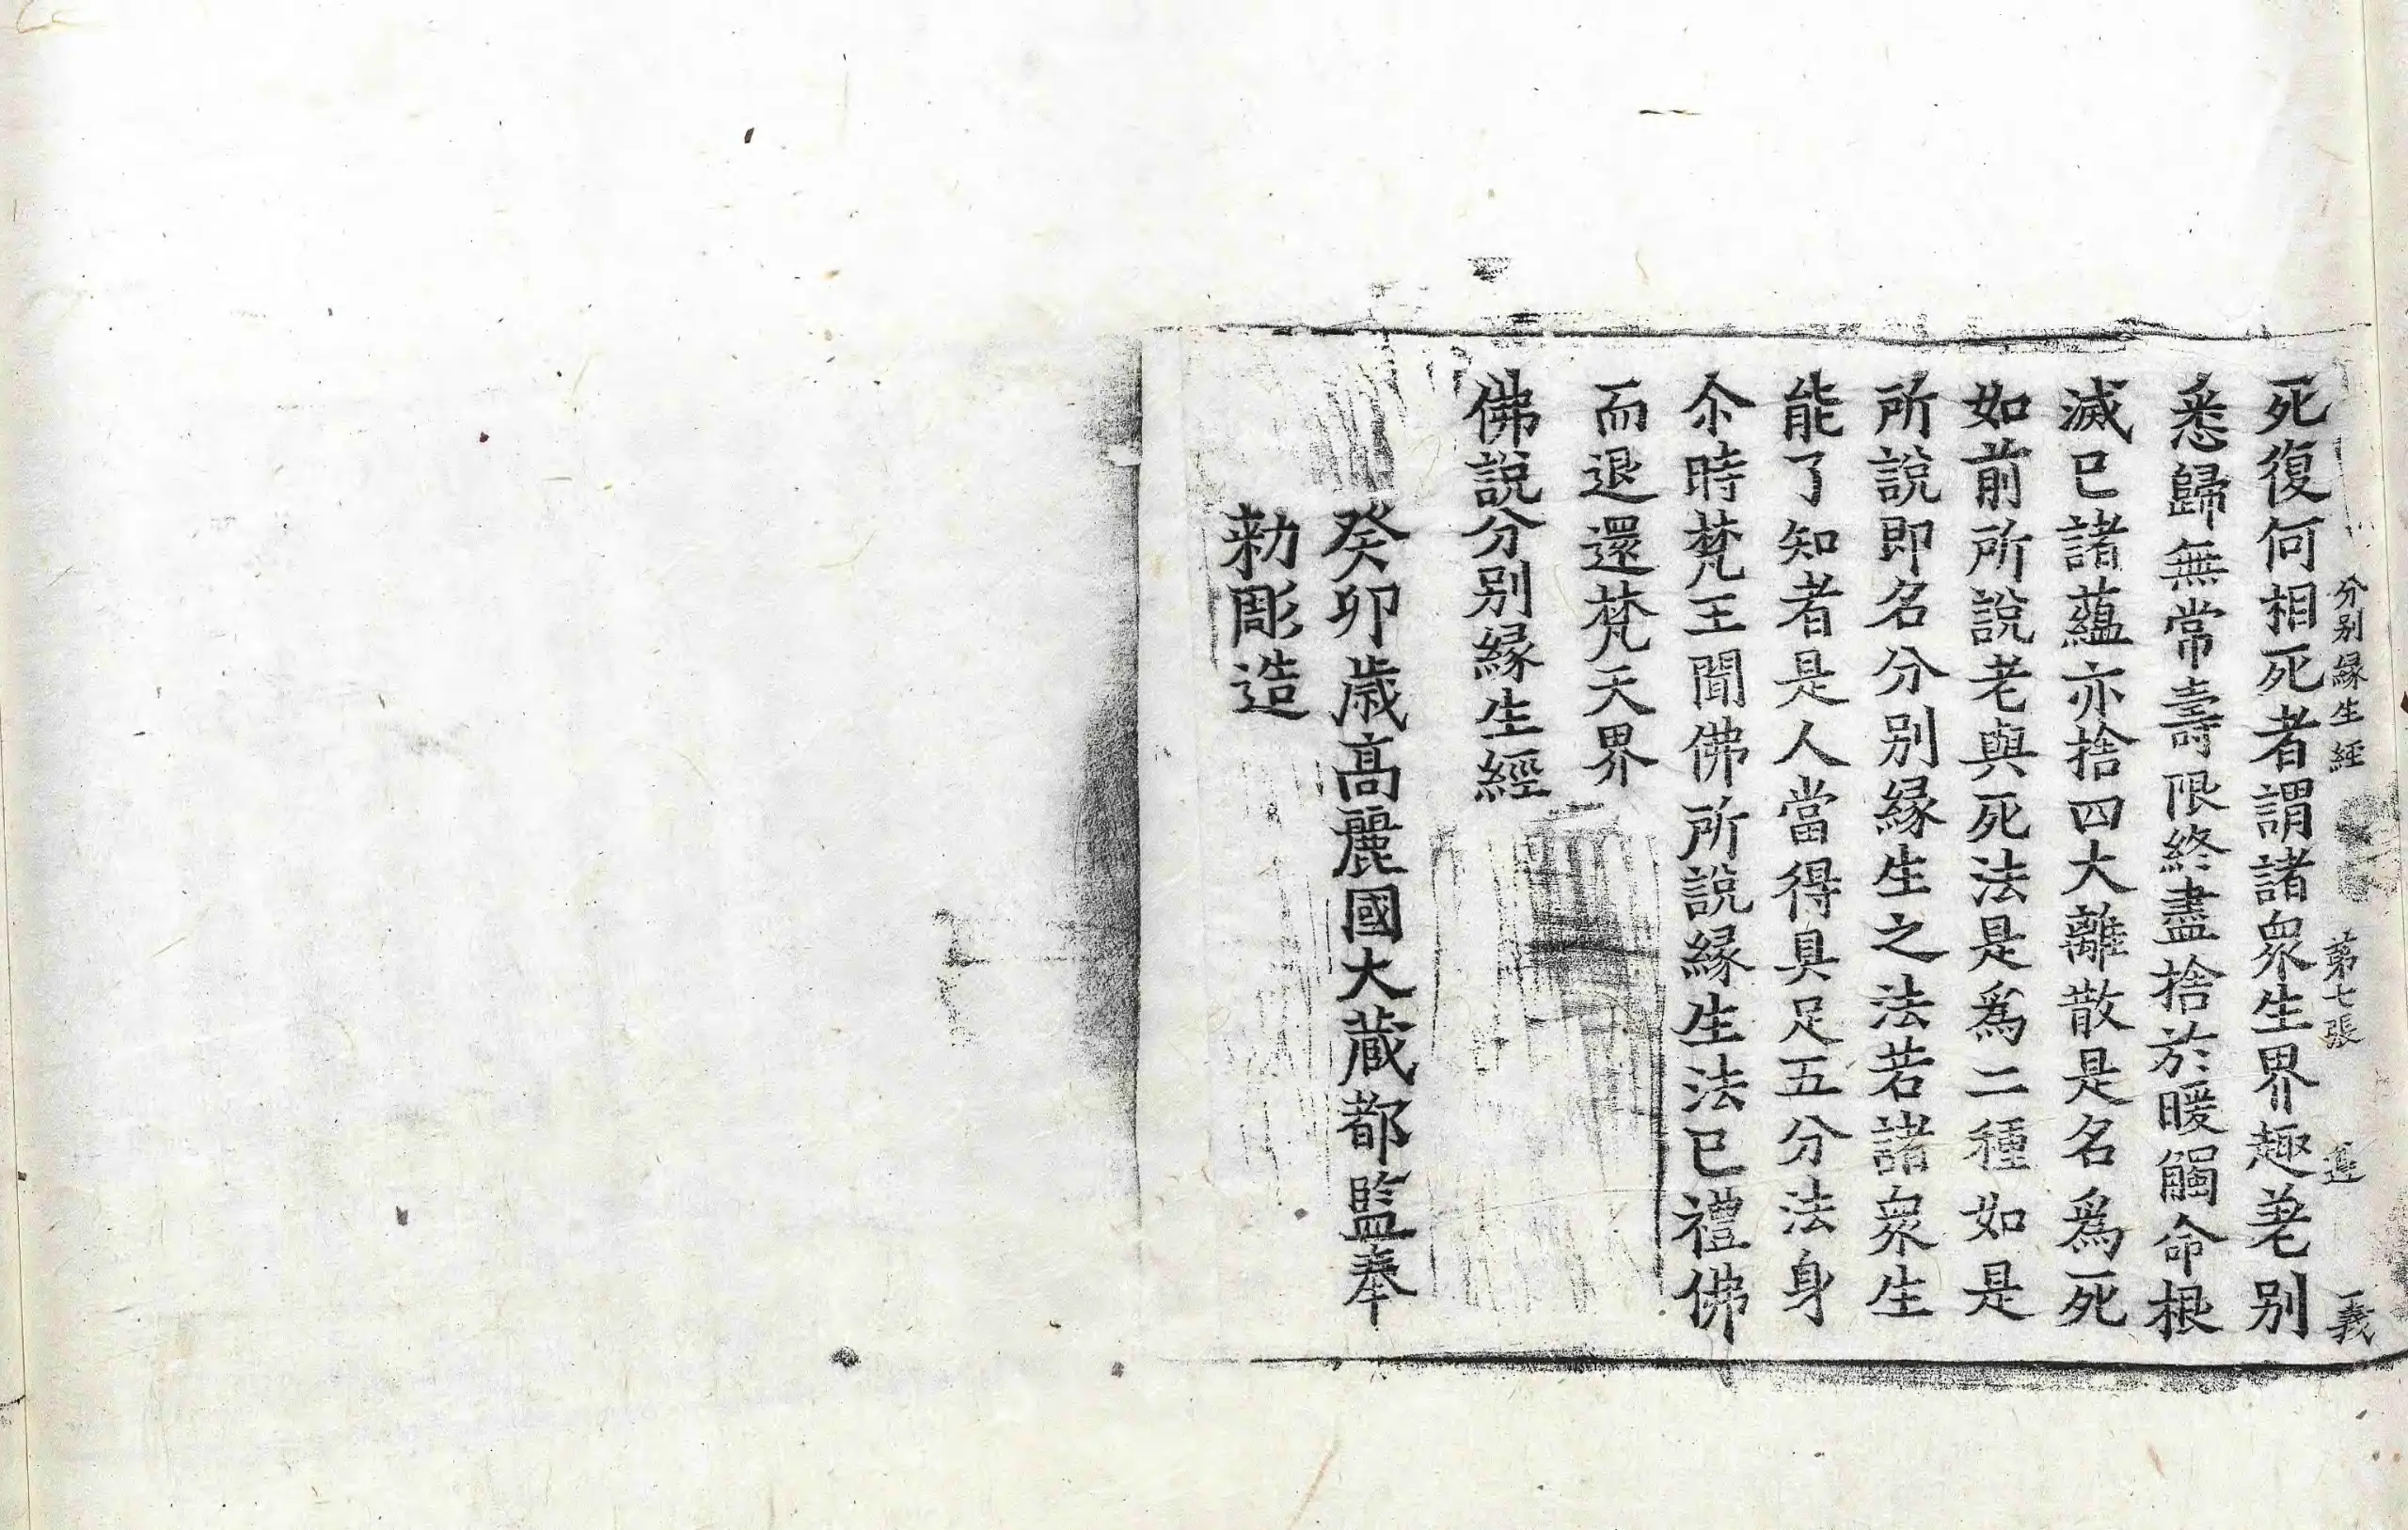 分别縁生經 第七張 義
死復何相死者謂諸衆生界趣差别
悉歸無常壽限終盡捨於暖觸命根
滅已諸蘊亦捨四大離散是名爲死
如前所說老與死法是爲二種如是
所說即名分别縁生之法若諸衆生
能了知者是人當得具足五分法身
尒時梵王聞佛所說縁生法已禮佛
而退還梵天界
佛說分别縁生經
癸卯歳高麗國大藏都監奉
勅彫造